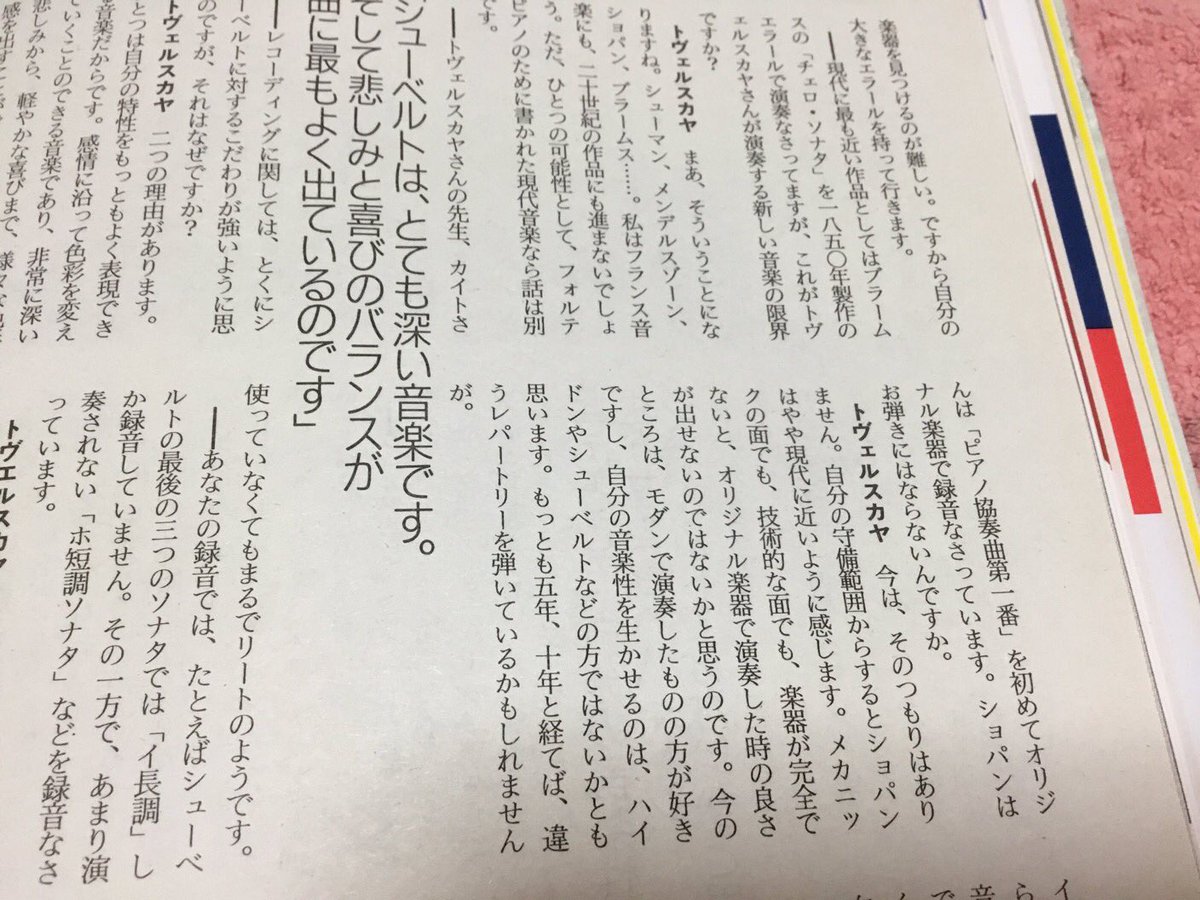 楽器を見つけるのが難しい。ですから自分の
大きなエラールを持って行きます。
――現代に最も近い作品としてはブラーム
スの「チェロ・ソナタ」を一八五〇年製作の
エラールで演奏なさってますが、これがトヴ
ェルスカヤさんが演奏する新しい音楽の限界
ですか？
トヴェルスカヤ　まあ、そういうことにな
りますね。シューマン、メンデルスゾーン、
ショパン、ブラームス……。私はフランス音
楽にも、二十世紀の作品にも進まないでしょ
う。ただ、ひとつの可能性として、フォルテ
ピアノのために書かれた現代音楽なら話は別
です。
――トヴェルスカヤさんの先生、カイトさ
んは「ピアノ協奏曲第一番」を初めてオリジ
ナル楽器で録音なさっています。ショパンは
お弾きにはならないんですか。
トヴェルスカヤ　今は、そのつもりはあり
ません。自分の守備範囲からするとショパン
はやや現代に近いように感じます。メカニッ
クの面でも、技術的な面でも、楽器が完全で
ないと、オリジナル楽器で演奏した時の良さ
が出せないのではないかと思うのです。今の
ところは、モダンで演奏したものの方が好き
ですし、自分の音楽性を生かせるのは、ハイ
ドンやシューベルトなどの方ではないかとも
思います。もっとも五年、十年と経てば、違
うレパートリーを弾いているかもしれません
が。
シューベルトは、とても深い音楽です。
そして悲しみと喜びのバランスが
曲に最もよく出ているのです」
――レコーディングに関しては、とくにシ
ーベルトに対するこだわりが強いように思
のですが、それはなぜですか？
トヴェルスカヤ　二つの理由があります。
とつは自分の特性をもっともよく表現でき
音楽だからです。感情に沿って色彩を変え
ていくことのできる音楽であり、非常に深い
悲しみから、軽やかな喜びまで、様々な
感を出すことが
使っていなくてもまるでリートのようです。
――あなたの録音では、たとえばシューベ
ルトの最後の三つのソナタでは「イ長調」し
か録音していません。その一方で、あまり演
奏されない「ホ短調ソナタ」などを録音なさ
っています。
トヴェルスカヤ